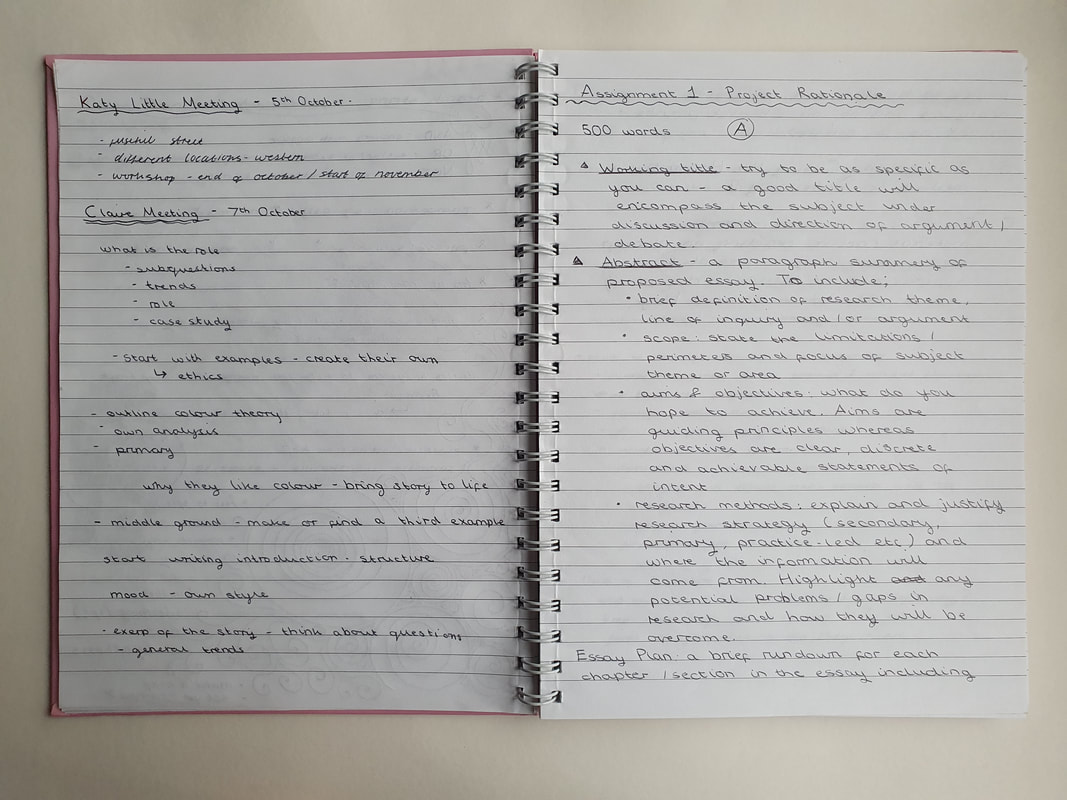 Katy Little Meeting - 5th October.
- street
- different locations - western
- workshop - end of october / start of november
Claire Meeting - 7th October
what is the role
- subquestions
- trends
- role
- case study
- start with examples - create their own
↳ ethics
- outline colour theory
- own analysis
- primary
why they like colour - bring story to life
- middle ground - make or find a third example
start writing introduction - structure
mood - own style
- exerp of the story - think about questions
- general trends
Assignment 1 - Project Rationale
500 words A
Working title - try to be as specific as
you can - a good title will
encompass the subject under
discussion and direction of argument /
debate.
Abstract - a paragraph summery of
proposed essay. To include;
• brief definition of research theme,
line of inquiry and/or argument
• scope: state the limitations /
perimeters and focus of subject
theme or area
• aims & objectives: what do you
hope to achieve. Aims are
guiding principles whereas
objectives are clear, discrete
and achievable statements of
intent
• research methods: explain and justify
research strategy (secondary,
primary, practice-led etc) and
where the information will
come from. Highlight any
potential problems / gaps in
research and how they will be
overcome.
Essay Plan: a brief rundown for each
chapter / section in the essay including